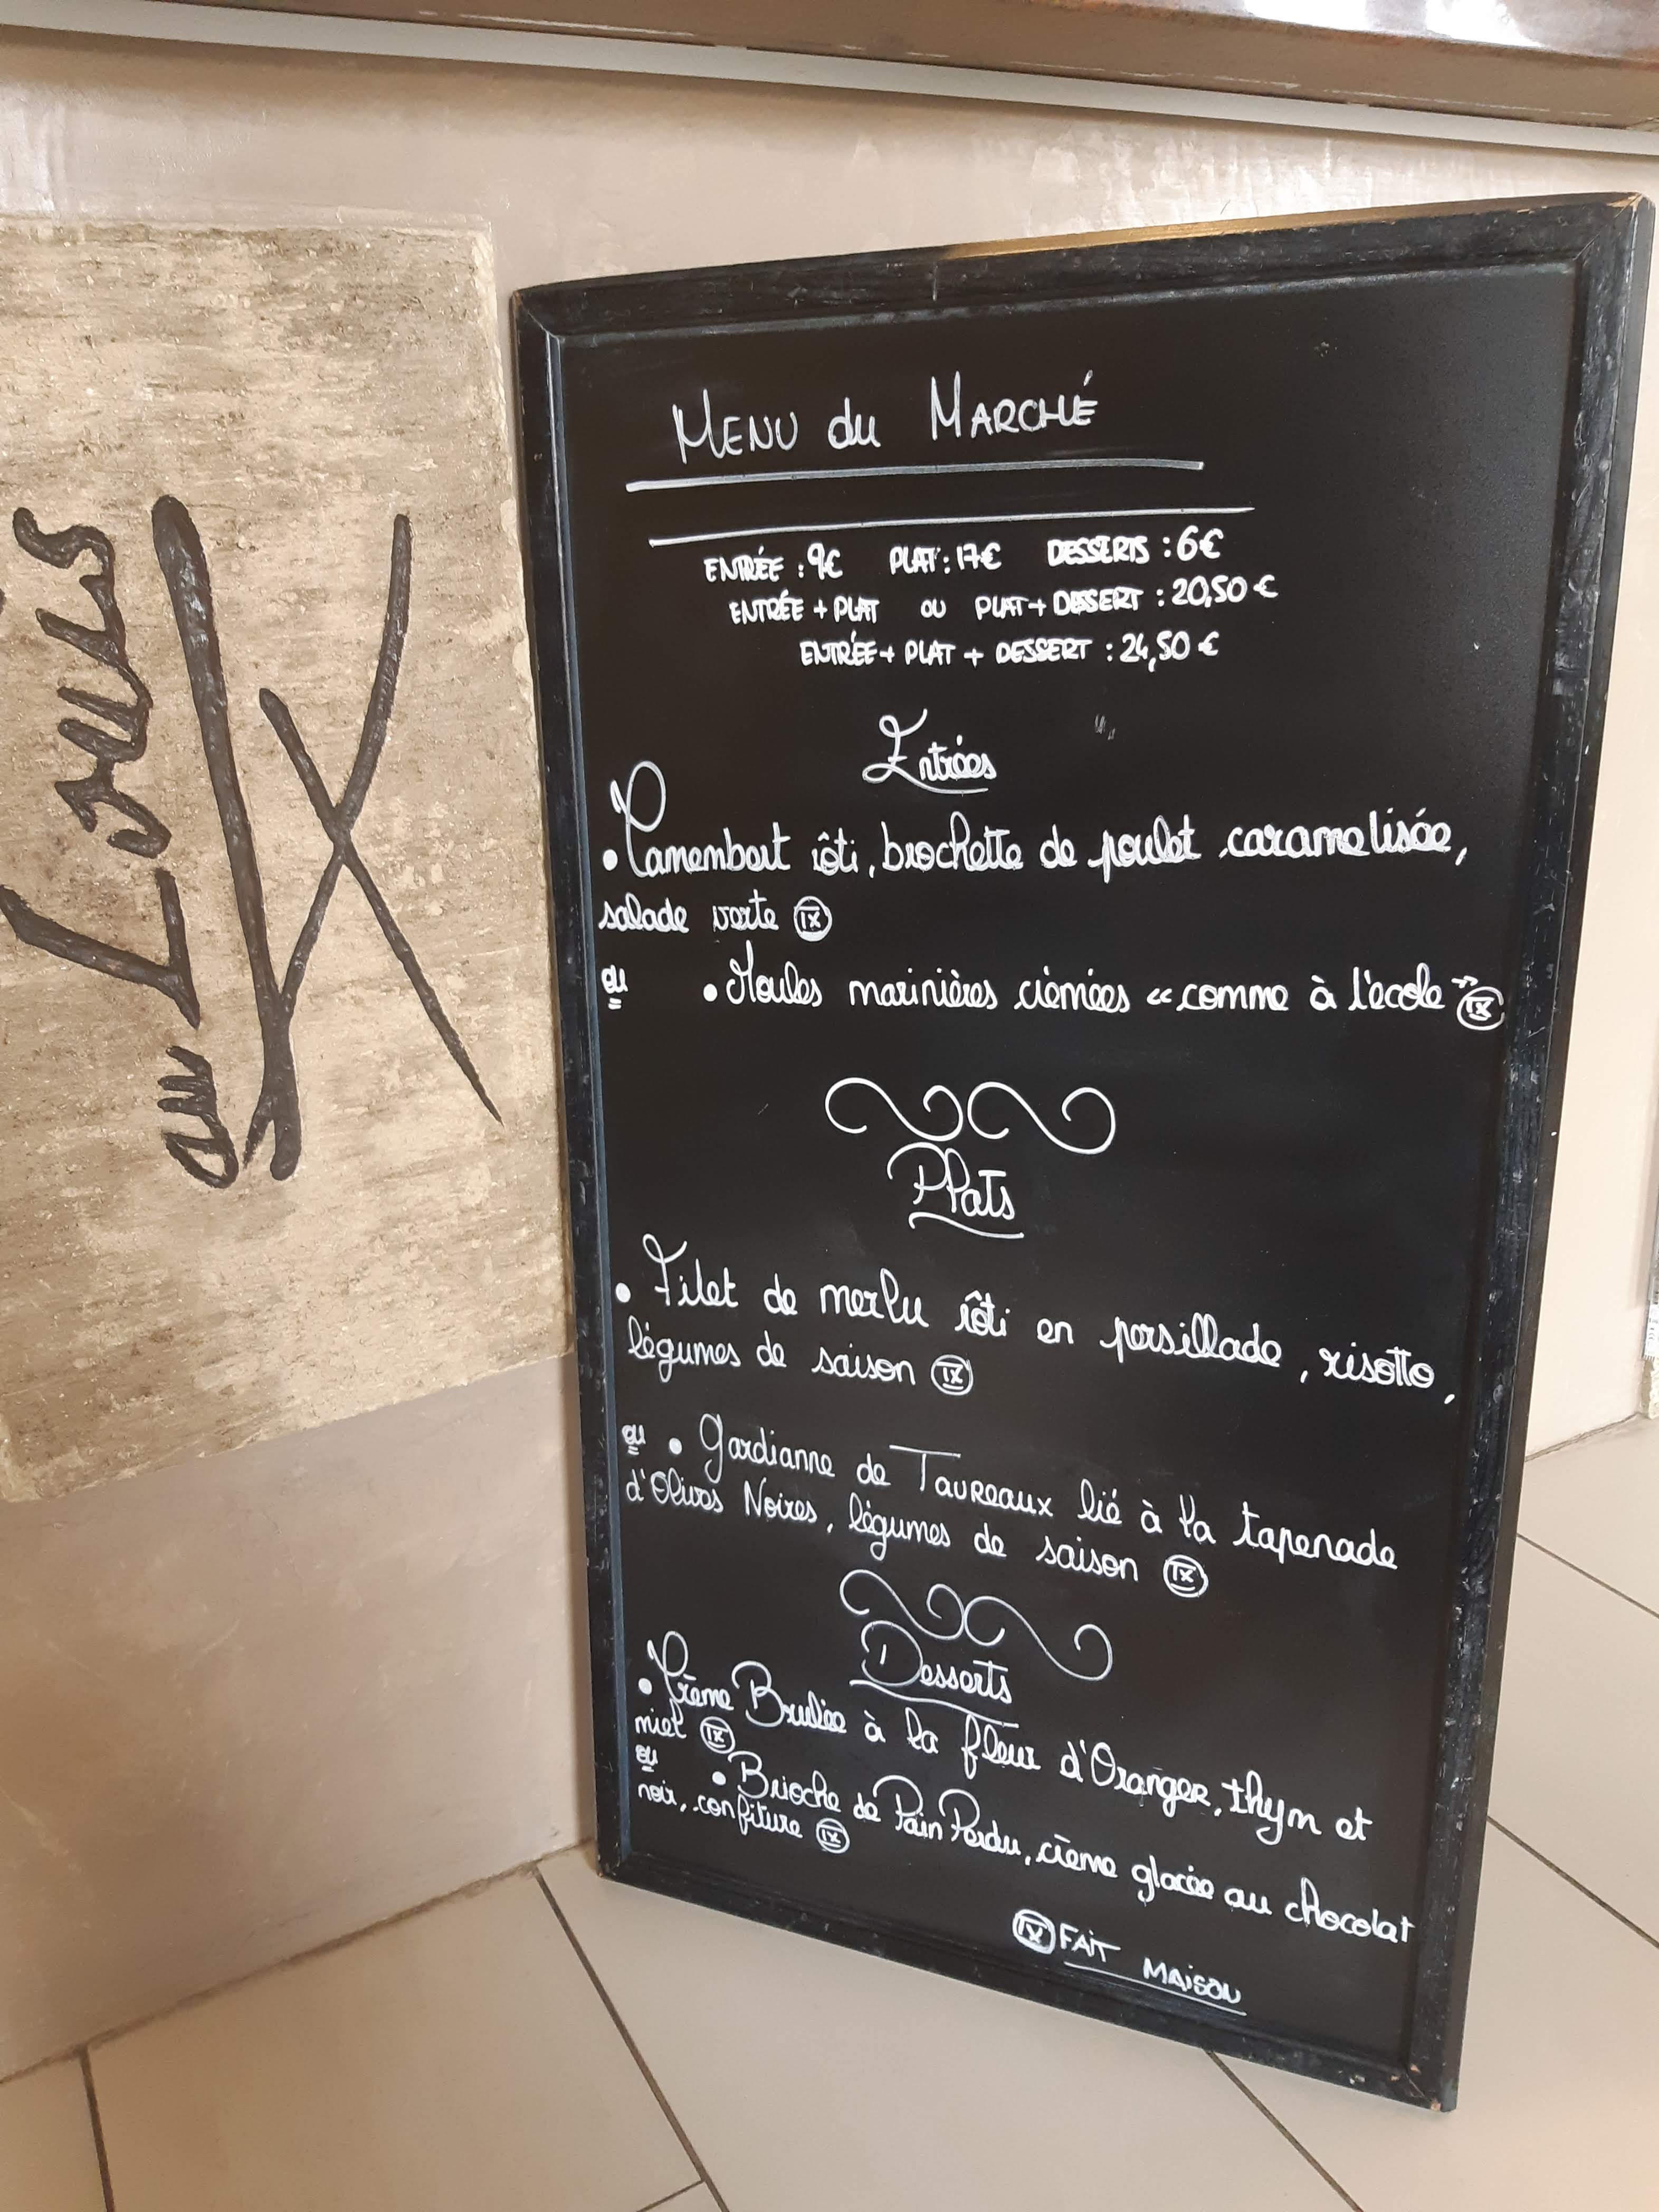 au Louis
IX
MENU du MARCHÉ
ENTRÉE : 9€ PLAT : 17€ DESSERTS : 6€
ENTRÉE + PLAT OU PLAT + DESSERT : 20,50 €
ENTRÉE + PLAT + DESSERT : 24,50 €
Entrées
• Camembert rôti, brochette de poulet caramelisée,
salade verte IX
ou • Moules marinières crémées « comme à l'école » IX
Plats
• Filet de merlu rôti en persillade, risotto,
légumes de saison IX
ou • Gardianne de Taureaux lié à la tapenade
d'Olives Noires, légumes de saison IX
Desserts
• Crème Brulée à la fleur d'Oranger, thym et
miel IX
ou • Brioche de Pain Perdu, crème glacée au chocolat
noir, confiture IX
IX FAIT MAISON